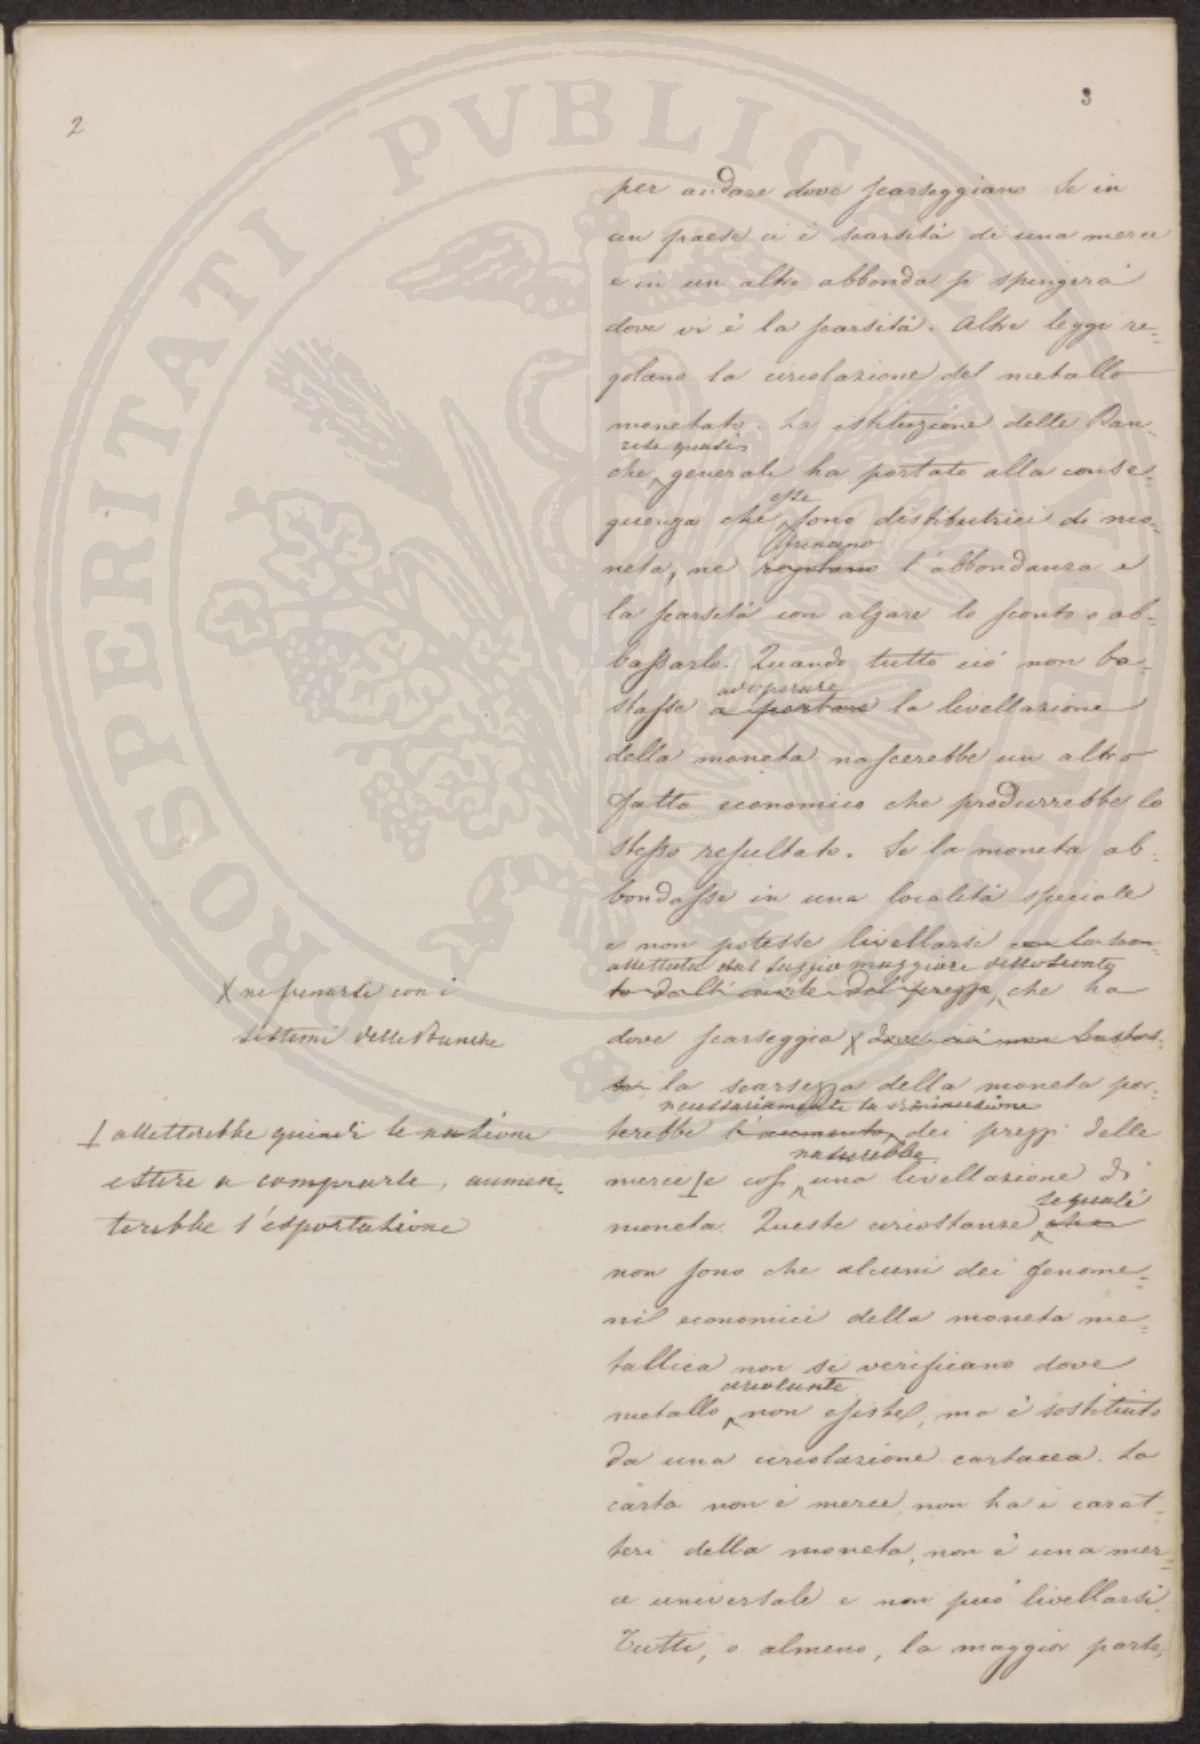 2
3
per andare dove scarseggiano Se in
un paese ci è scarsità di una merce
e in un altro abbonda si spingerà
dove vi è la scarsità. Altre leggi re-
golano la circolazione del metallo
monetato. La istituzione delle Ban-
rese quasi
che generali ha portato alla conse-
esse
guenza che sono distributrici di mo-
frenano
neta, ne regolano l'abbondanza e
la scarsità con alzare lo sconto o ab-
bassarlo. Quando tutto ciò non ba-
adoperare
stasse a portare la livellazione
della moneta nascerebbe un altro
fatto economico che produrrebbe lo
stesso resultato. Se la moneta ab-
bondasse in una località speciale
e non potesse livellarsi
allettata dal saggio maggiore dello sconto
che ha
X ne frenarsi con i
sistemi delle Banche
dove scarseggia X dove ciò non bastas-
se la scarsezza della moneta por-
necessariamente la diminuzione
terebbe l'aumento dei prezzi delle
⊥ alletterebbe quindi le nazioni
estere a comprarle, aumen-
terebbe l'esportazione
nascerebbe
merci ⊥ e così una livellazione di
le quali
moneta. Queste circostanze che
non sono che alcuni dei fenome-
ni economici della moneta me-
tallica non si verificano dove
circolante
metallo non esiste, ma è sostituito
da una circolazione cartacea. La
carta non è merce, non ha i carat-
teri della moneta, non è una mer-
ce universale e non può livellarsi
Tutti, o almeno, la maggior parte,
PROSPERITATI PVBLICAE